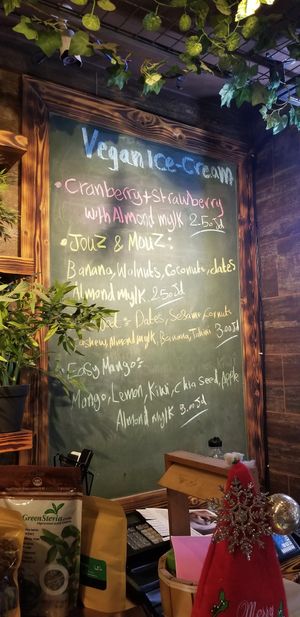 Vegan Ice-Cream
• Cranberry + Strawberry
with Almond mylk 2.50 Jd
• Jouz & Mouz:
Banana, Walnuts, Coconuts, dates
Almond mylk 2.50 Jd
Dates, Sesame, Coconut
Cashew, Almond mylk, Banana, Tahini 3.00 Jd
• Easy Mango:
Mango, Lemon, Kiwi, Chia Seed, Apple
Almond mylk 3.00 Jd
GreenStevia.com
Merry